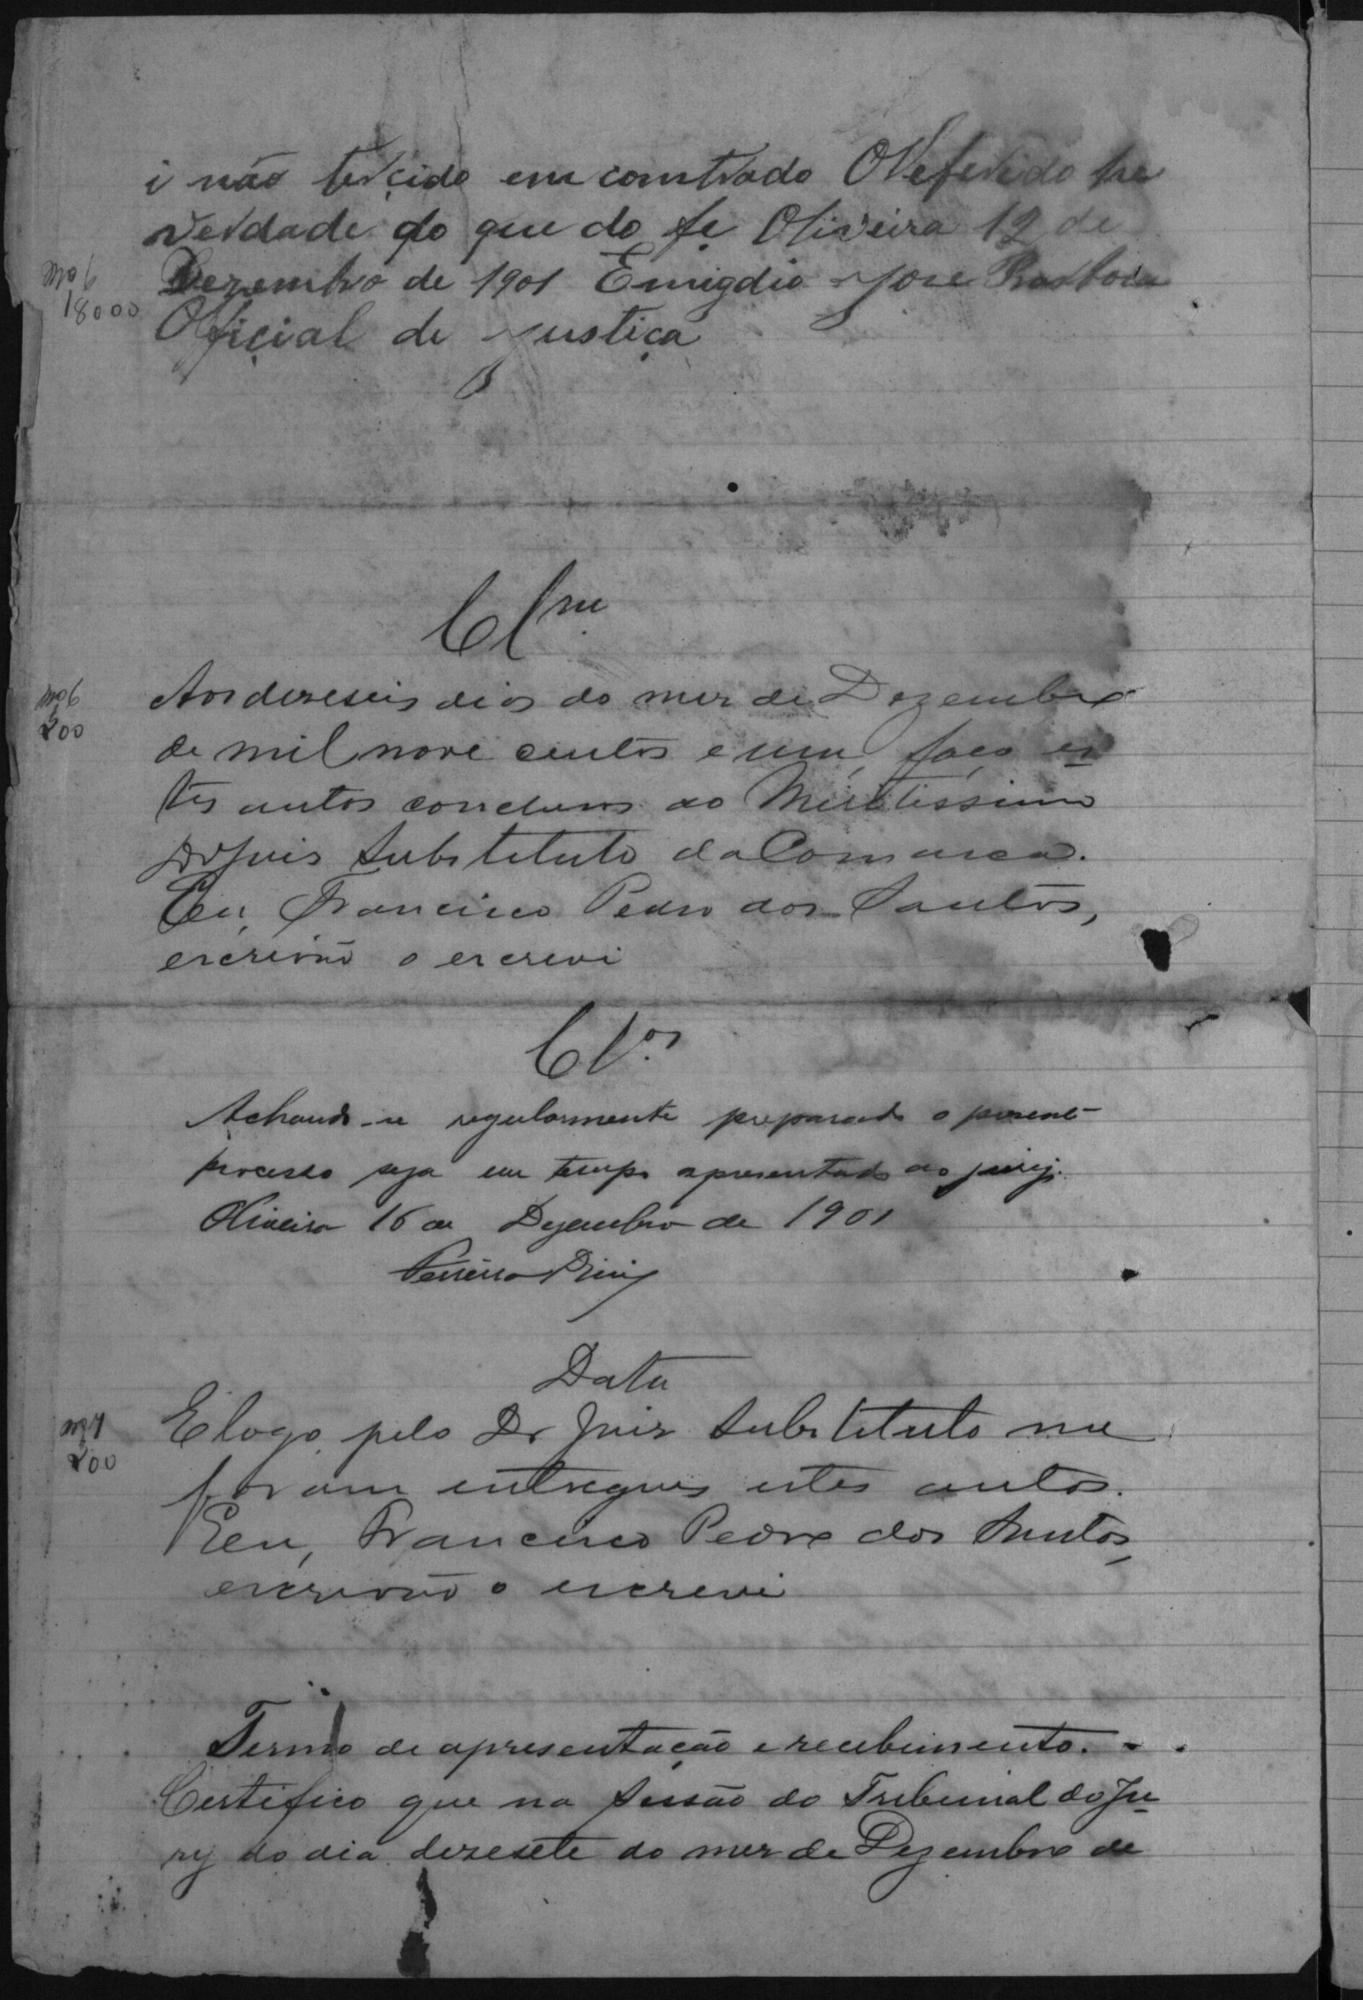 i não tercido emcomtrado O Referido he
verdade do que do fe Oliveira 12 de
Dezembro de 1901 Emigdio Jose Barboza
18000
Official de justiça
Clm
Aos dezeseis dias do mez de Dezembro
de mil nove centos e um, faço es
200
tes autos conclusos ao Meritissimo
Dr Juis Substituto da Comarca.
Eu, Francisco Pedro dos Santos,
escrivão o escrevi
Clos
Achando-se regularmente preparado o presente
processo seja em tempo apresentado ao jury.
Oliveira 16 de Dezembro de 1901
Data
E logo pelo Dr Juiz Substituto me
200
foram entregues estes autos.
Eeu, Francisco Pedro dos Santos,
escrivão o escrevi
Termo de apresentação e recebimento.
Certifico que na sessão do Tribunal do Ju
ry do dia dezesete do mez de Dezembro de